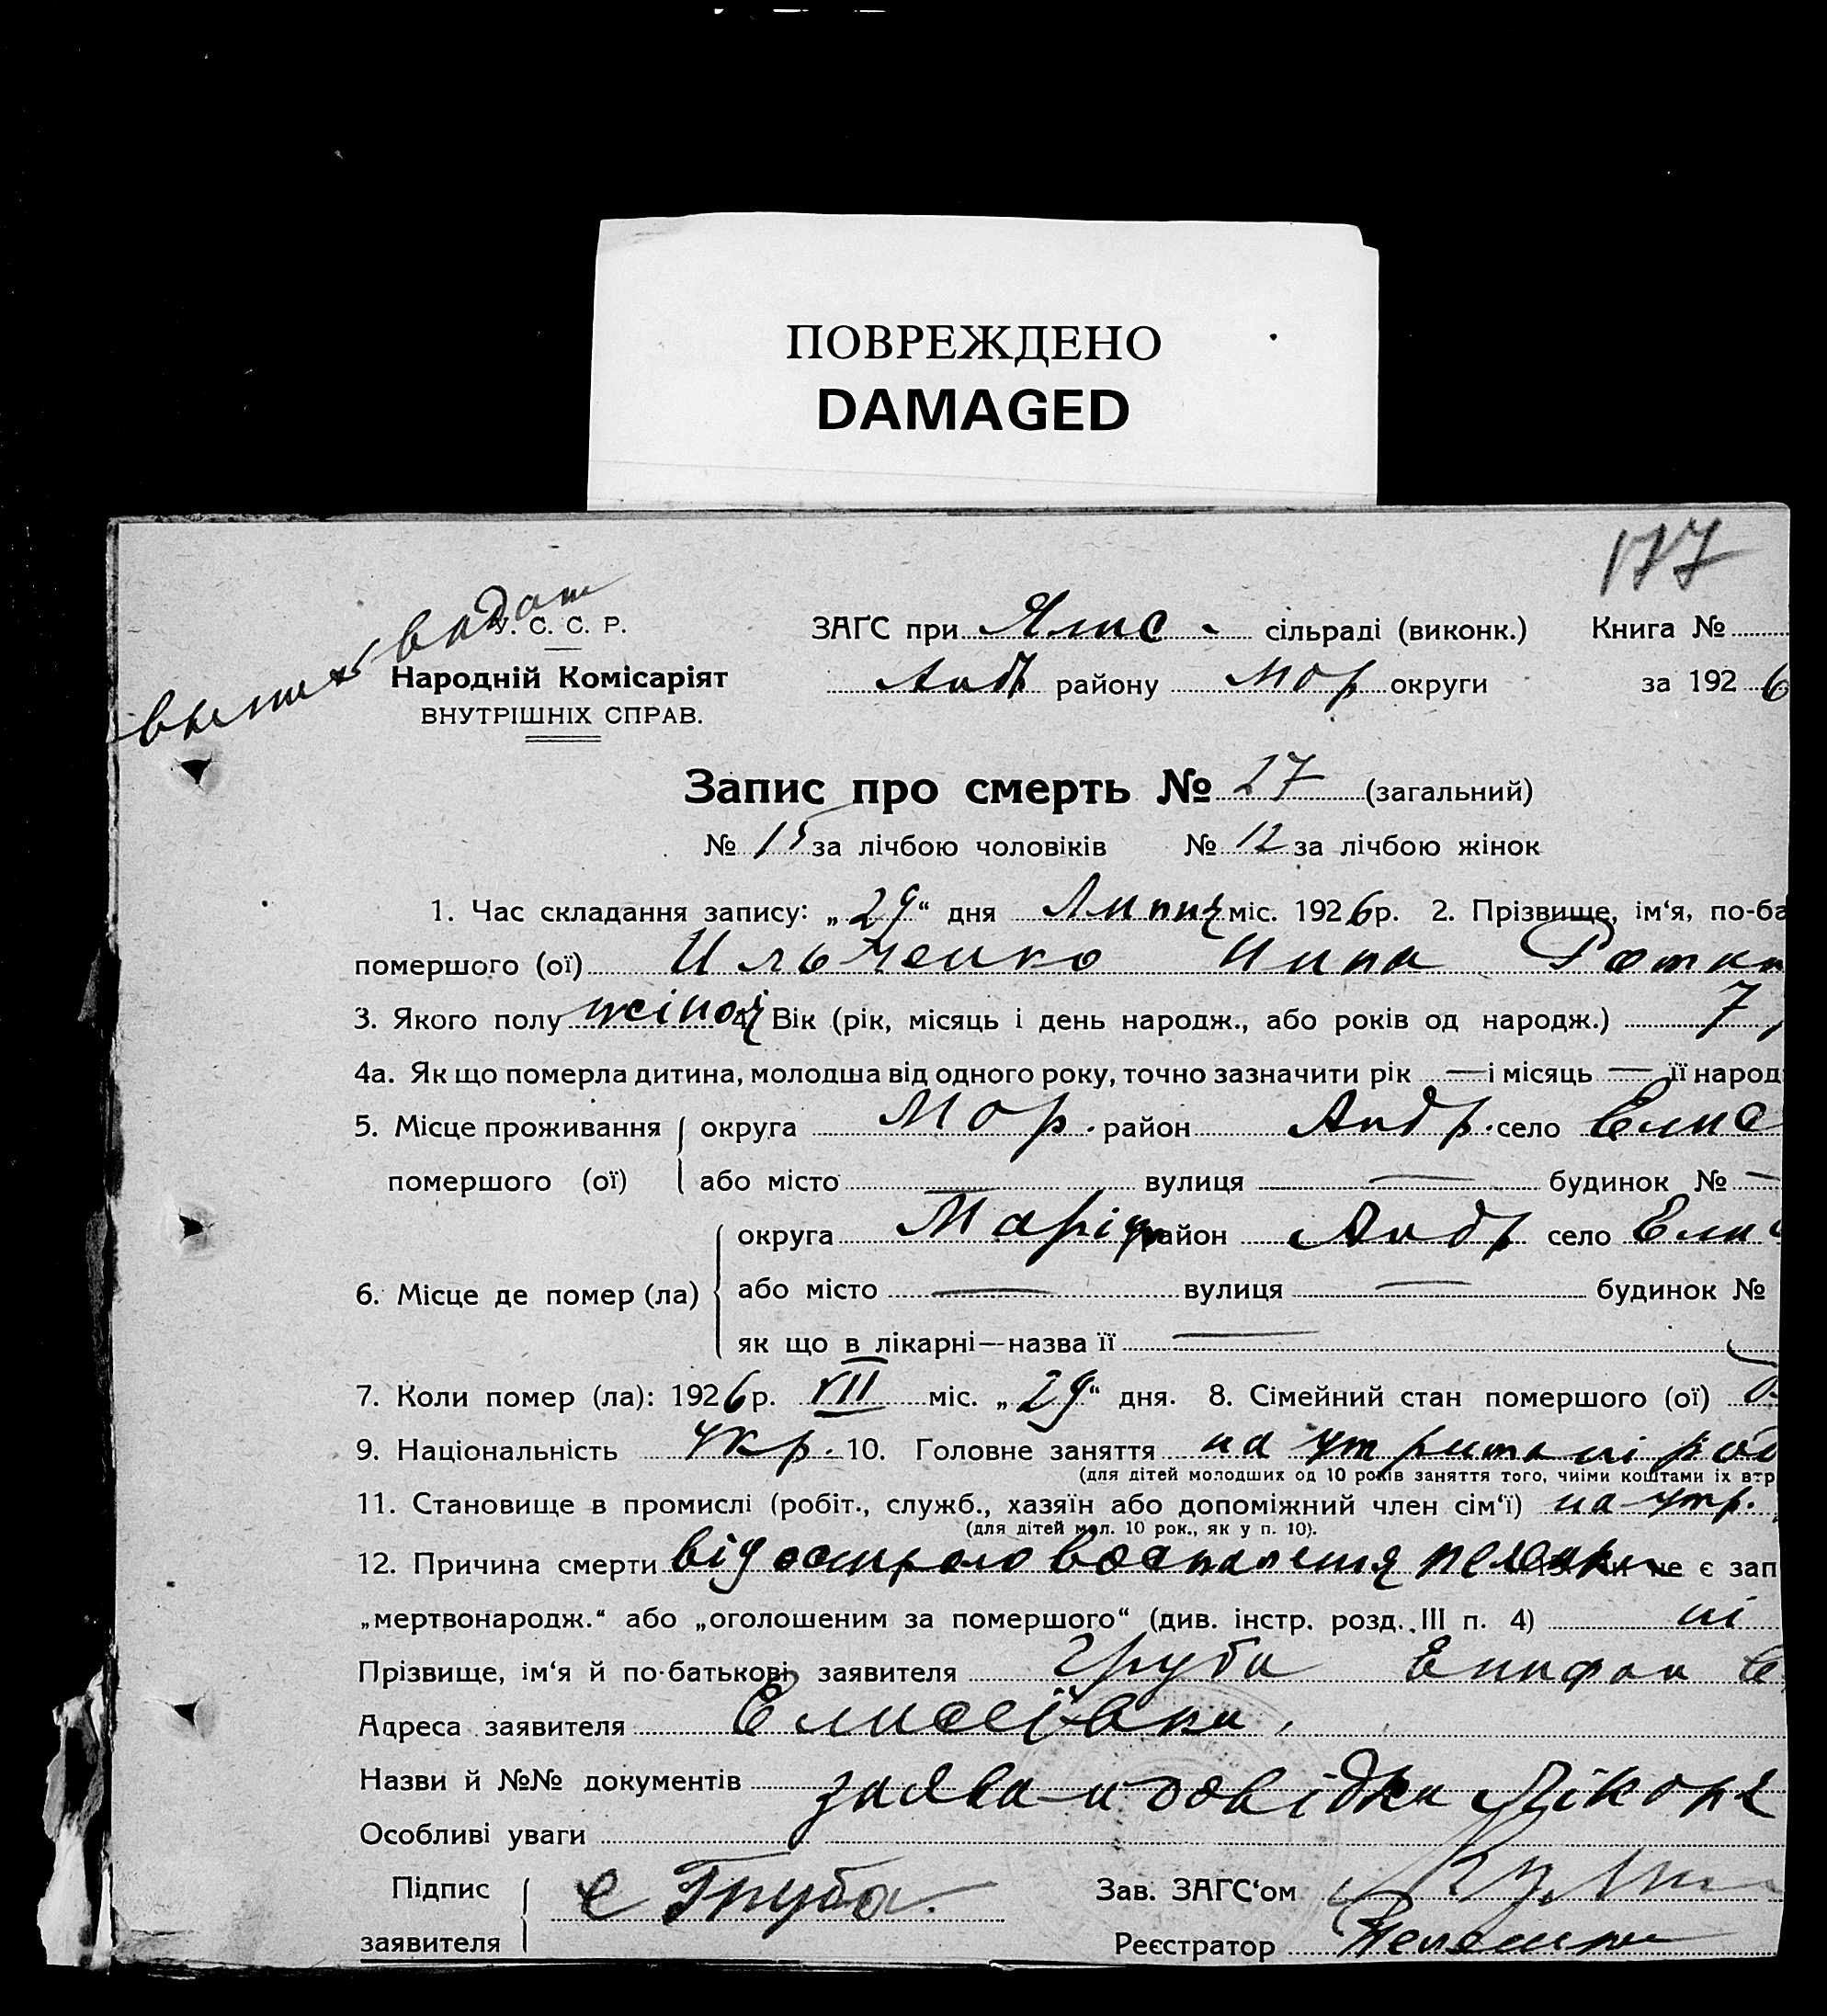 ПОВРЕЖДЕНО
DAMAGED
177
У. С. С. Р.
Народній Комісаріят
ВНУТРІШНІХ СПРАВ.
ЗАГС при Ялис - сільраді (виконк.) Книга №
Андр району Мар округи за 1926
Запис про смерть № 27 (загальний)
№ 15 за лічбою чоловіків № 12 за лічбою жінок
1. Час складання запису: „29“ дня Липня міс. 1926 р. 2. Прізвище, ім‘я, по-ба
помершого (ої) Ильченко Нина
3. Якого полу жіноч 4. Вік (рік, місяць і день народж., або років од народж.) 7
4а. Як що померла дитина, молодша від одного року, точно зазначити рік — і місяць — її народ
5. Місце проживання округа Мар. район Андр. село Елис
помершого (ої) або місто вулиця — будинок № —
округа Марію район Андр село Елис
6. Місце де помер (ла) або місто — вулиця — будинок №
як що в лікарні—назва її —
7. Коли помер (ла): 1926 р. VII міс. „29“ дня. 8. Сімейний стан помершого (ої)
9. Національність укр. 10. Головне заняття на утримані род
(для дітей молодших од 10 років заняття того, чиїми коштами їх втр
11. Становище в промислі (робіт., служб., хазяїн або допоміжний член сім‘ї) на утр.
(для дітей мол. 10 рок., як у п. 10).
12. Причина смерти від острого воспаленія не є зап
„мертвонародж.“ або „оголошеним за помершого“ (див. інстр. розд. III п. 4) ні
Прізвище, ім‘я й по-батькові заявителя Груба Епифан Е
Адреса заявителя Елисеївка
Назви й №№ документів заява и довідка Лікаря
Особливі уваги
Підпис заявителя Е Груба. Зав. ЗАГС‘ом
Реєстратор